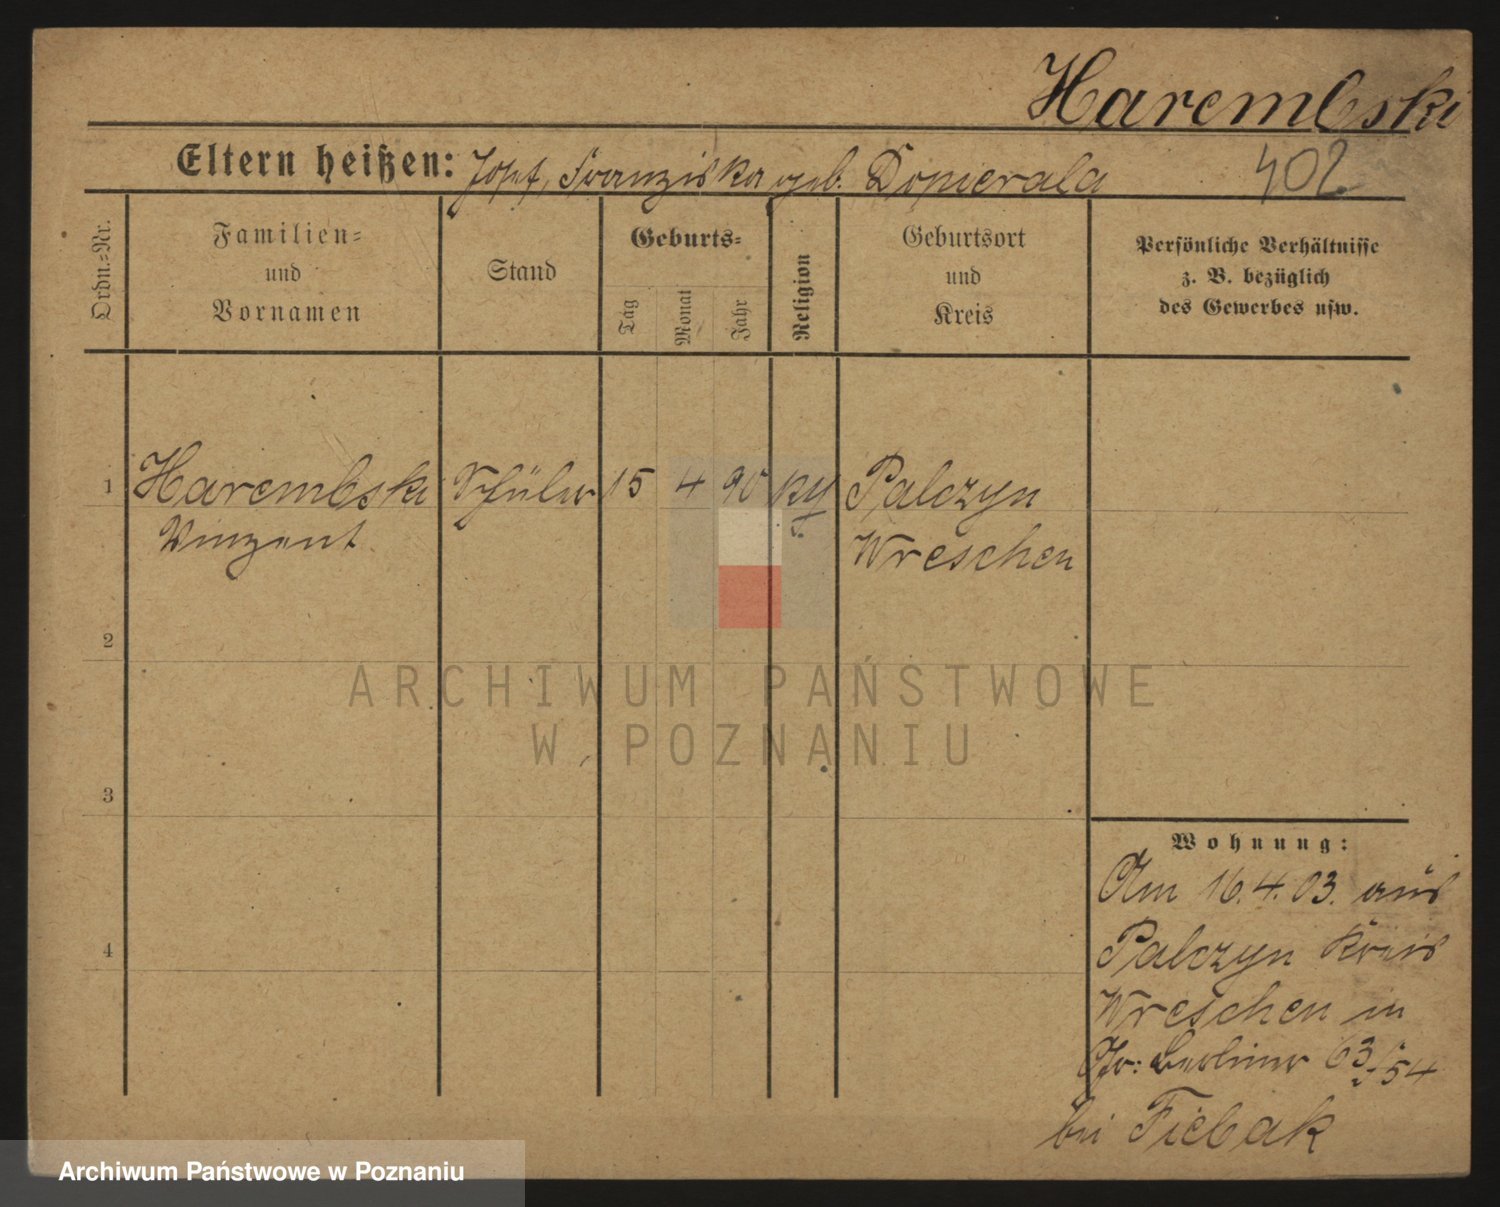 Harembski
Eltern heißen: Josef, Franziska geb. Dopierala
402
Ordn.-Nr.
Familien-
und
Vornamen
Stand
Geburts-
Tag
Monat
Jahr
Religion
Geburtsort
und
Kreis
Persönliche Verhältnisse
z. B. bezüglich
des Gewerbes usw.
1 Harembski Schüler 15 4 90 Palczyn
Vinzent Wreschen
2
3
4
Wohnung:
Am 16.4.03. aus
Palczyn Kreis
Wreschen in
Berliner 63/54
bei Fiebak
ARCHIWUM PAŃSTWOWE
W POZNANIU
Archiwum Państwowe w Poznaniu